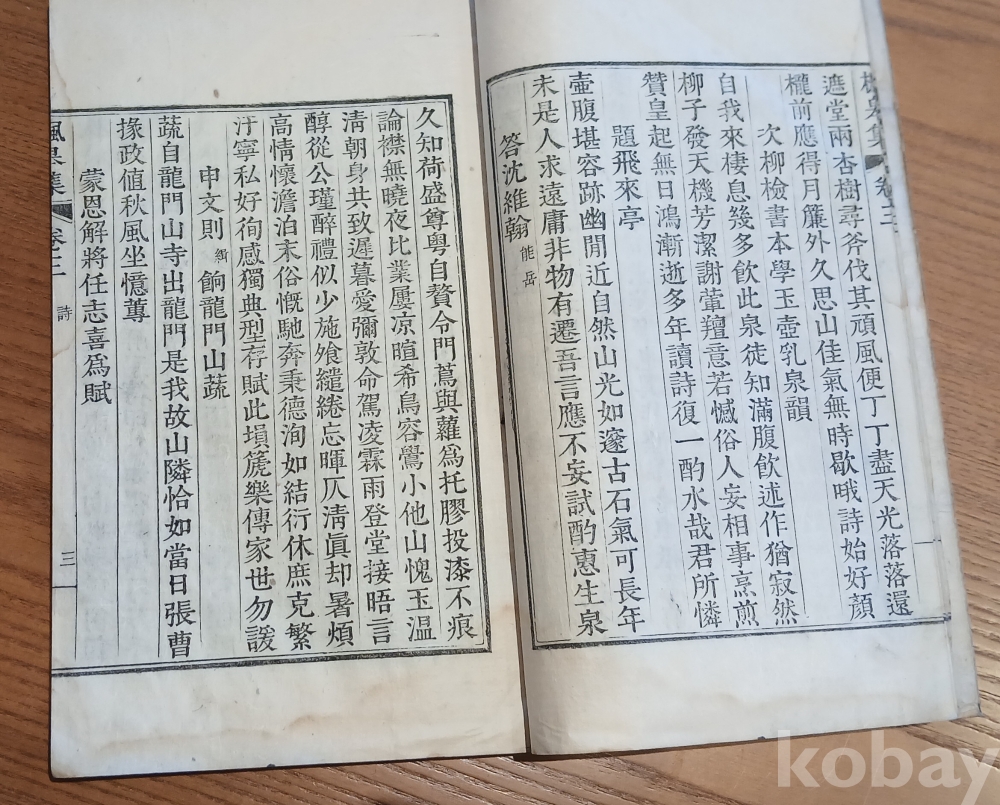 楓皐集 卷三
遮堂兩杏樹尋斧伐其頑風便丁丁盡天光落落還
櫳前應得月簾外久思山佳氣無時歇哦詩始好顏
次柳檢書本學玉壺乳泉韻
自我來棲息幾多飲此泉徒知滿腹飲述作猶寂然
柳子發天機芳潔謝葷羶意若憾俗人妄相事烹煎
贊皇起無日鴻漸逝多年讀詩復一酌水哉君所憐
題飛來亭
壺腹堪容跡幽閒近自然山光如邃古石氣可長年
未是人求遠庸非物有遷吾言應不妄試酌惠生泉
答沈維翰 能岳
久知荷盛尊粤自贅令門蔦與蘿爲托膠投漆不痕
論襟無曉夜比業屢凉暄希鳥容鷽小他山愧玉溫
淸朝身共致遲暮愛彌敦命駕凌霖雨登堂接晤言
醇從公瑾醉禮似少施飧繾綣忘暉仄淸眞却暑煩
高情懷澹泊末俗慨馳奔秉德洵如結衍休庶克繁
汙寧私好徇感獨典型存賦此塤箎樂傳家世勿諼
申文則 餉龍門山蔬
蔬自龍門山寺出龍門是我故山隣恰如當日張曹
掾政值秋風坐憶蓴
蒙恩解將任志喜爲賦
楓皐集 卷三 詩 三
kobay